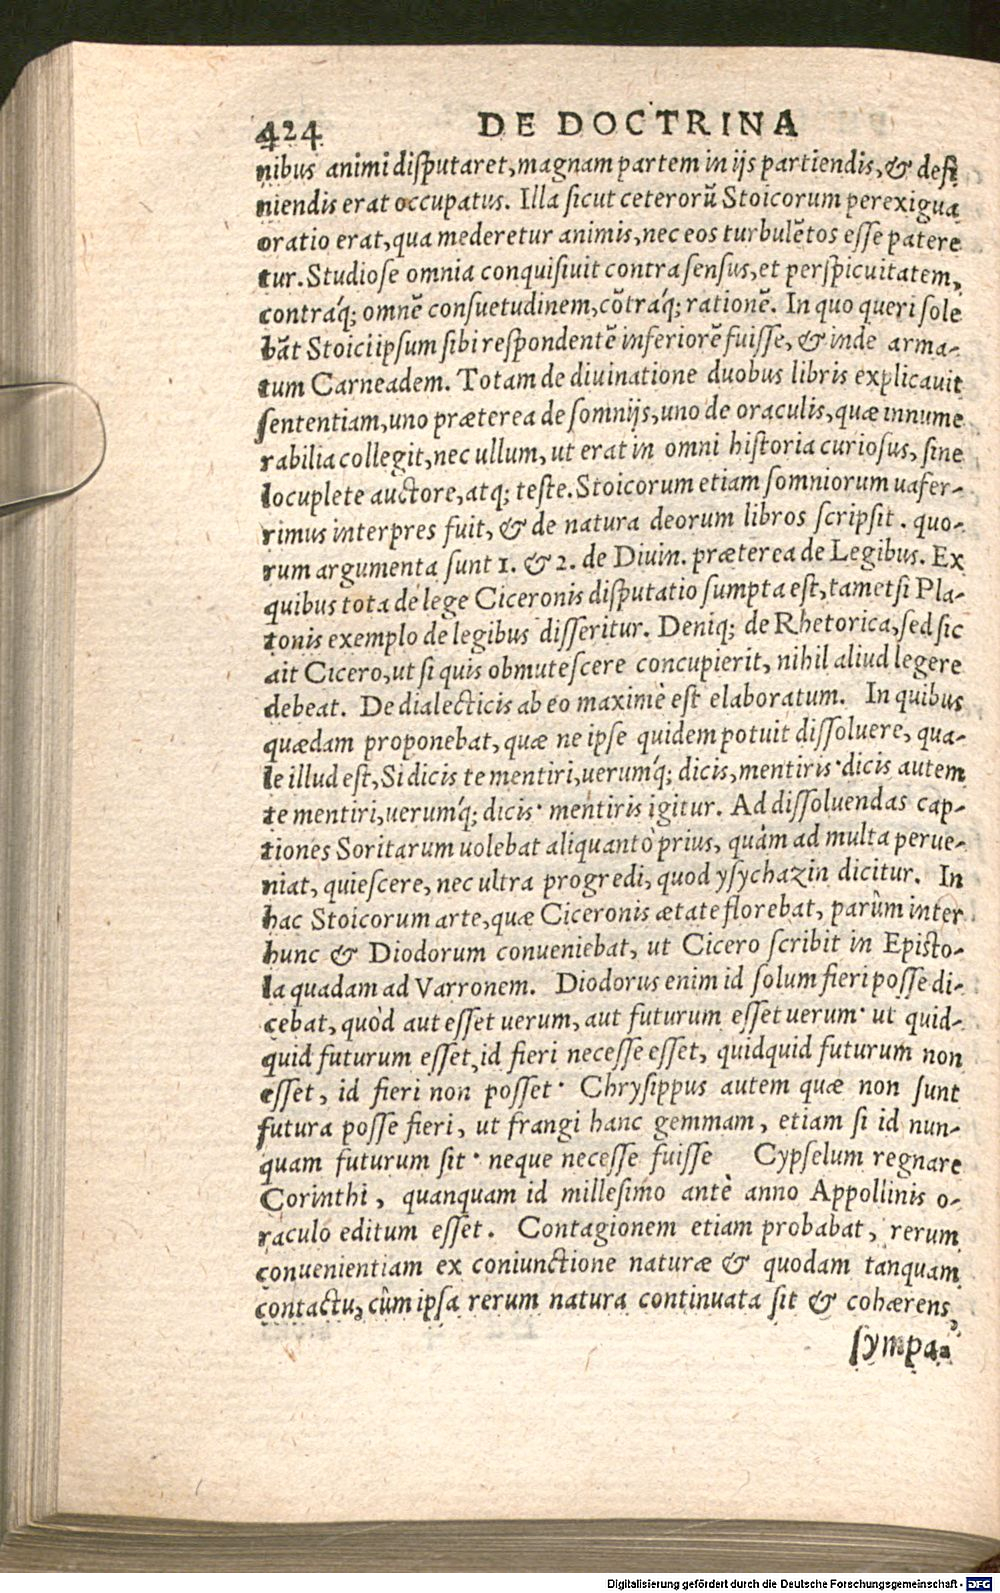 424 DE DOCTRINA
nibus animi disputaret, magnam partem in ijs partiendis, & defi
niendis erat occupatus. Illa sicut ceterorũ Stoicorum perexigua
oratio erat, qua mederetur animis, nec eos turbulẽtos esse patere
tur. Studiose omnia conquisiuit contra sensus, et perspicuitatem,
contráq; omnẽ consuetudinem, cõtráq; rationẽ. In quo queri sole
bãt Stoici ipsum sibi respondentẽ inferiorẽ fuisse, & inde arma-
tum Carneadem. Totam de diuinatione duobus libris explicauit
sententiam, uno præterea de somnijs, uno de oraculis, quæ innume
rabilia collegit, nec ullum, ut erat in omni historia curiosus, sine
locuplete auctore, atq; teste. Stoicorum etiam somniorum uafer-
rimus interpres fuit, & de natura deorum libros scripsit. quo-
rum argumenta sunt 1. & 2. de Diuin. præterea de Legibus. Ex
quibus tota de lege Ciceronis disputatio sumpta est, tametsi Pla-
tonis exemplo de legibus disseritur. Deniq; de Rhetorica, sed sic
ait Cicero, ut si quis obmutescere concupierit, nihil aliud legere
debeat. De dialecticis ab eo maximè est elaboratum. In quibus
quædam proponebat, quæ ne ipse quidem potuit dissoluere, qua-
le illud est, Si dicis te mentiri, uerumq́; dicis, mentiris· dicis autem
te mentiri, uerumq́; dicis· mentiris igitur. Ad dissoluendas cap-
tiones Soritarum uolebat aliquantò prius, quàm ad multa perue-
niat, quiescere, nec ultra progredi, quod ysychazin dicitur. In
hac Stoicorum arte, quæ Ciceronis ætate florebat, parùm inter
hunc & Diodorum conueniebat, ut Cicero scribit in Episto-
la quadam ad Varronem. Diodorus enim id solum fieri posse di-
cebat, quòd aut esset uerum, aut futurum esset uerum· ut quid-
quid futurum esset, id fieri necesse esset, quidquid futurum non
esset, id fieri non posset· Chrysippus autem quæ non sunt
futura posse fieri, ut frangi hanc gemmam, etiam si id nun-
quam futurum sit· neque necesse fuisse Cypselum regnare
Corinthi, quanquam id millesimo antè anno Appollinis o-
raculo editum esset. Contagionem etiam probabat, rerum
conuenientiam ex coniunctione naturæ & quodam tanquam
contactu, cùm ipsa rerum natura continuata sit & cohærens,
sympa-
Digitalisierung gefördert durch die Deutsche Forschungsgemeinschaft - DFG